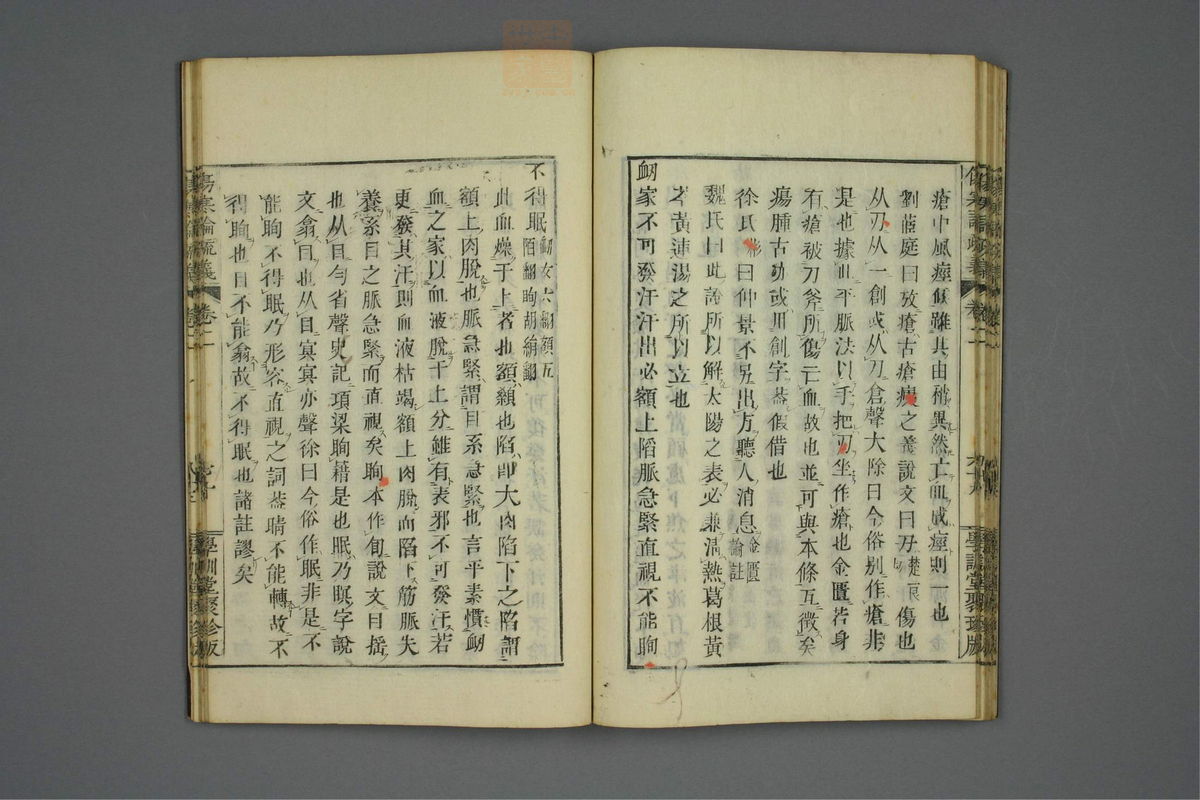 瘡中風痙候雖其由稍異然亡血成痙則一也
劉茝庭曰攷瘡古瘡瘍之義說文曰刅楚良傷也
从刃从一創或从刀倉聲大除曰今俗別作瘡非
是也據此平脈法以手把刃坐作瘡也金匱若身
有瘡被刀斧所傷亡血故也並可與本條互徵矣
瘍腫古亦或用創字葢假借也
徐氏曰仲景不另出方聽人消息金匱論註
魏氏曰此論所以解太陽之表必兼淸熱葛根黃
芩黃連湯之所以立也
衂家不可發汗汗出必額上陷脈急緊直視不能眴
不得眠
此血燥于上者也額顙也陷卽大肉陷下之陷謂
額上肉脫也脈急緊謂目系急緊也言平素慣衂
血之家以血液脫于上分雖有表邪不可發汗若
更發其汗則血液枯竭額上肉脫而陷下筋脈失
養系目之脈急緊而直視矣眴本作旬說文曰搖
也从目勻省聲史記項梁眴籍是也眠乃瞑字說
文翕目也从目冥冥亦聲徐曰今俗作眠非是不
能眴不得眠乃形容直視之詞葢睛不能轉故不
得眴也目不能翕故不得眠也諸註謬矣
傷寒論疏義
卷二
學訓堂聚珍版